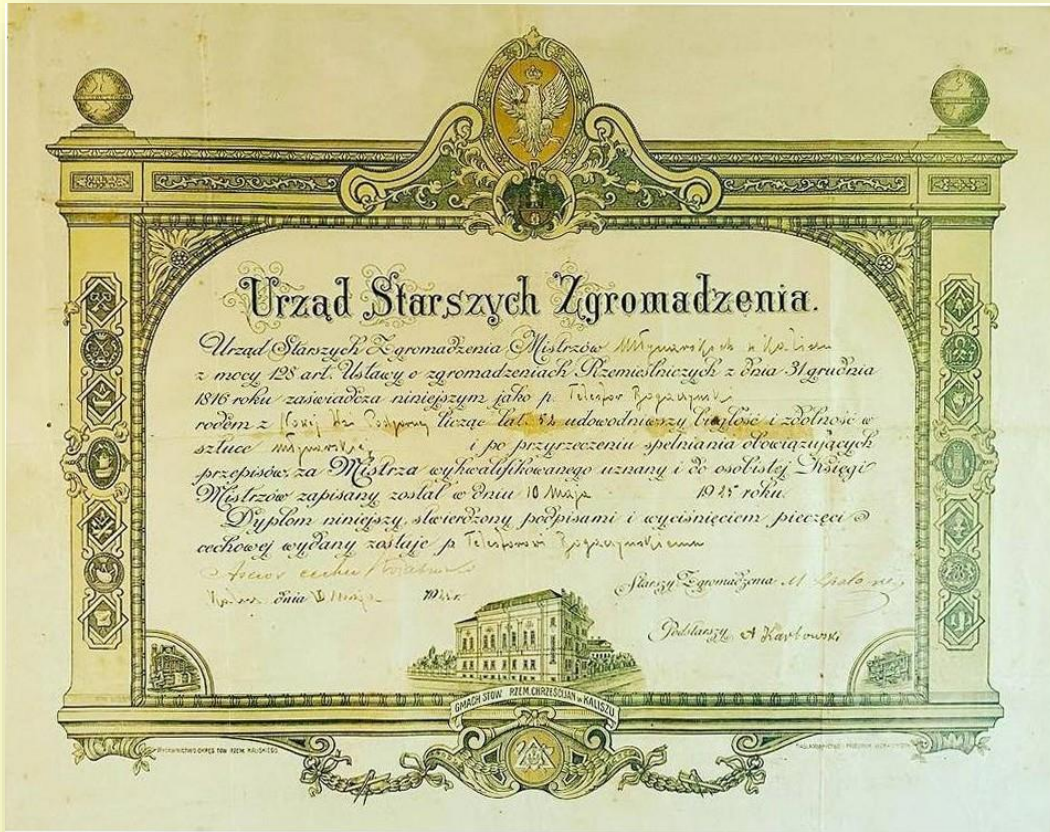 Urząd Starszych Zgromadzenia.
Urząd Starszych Zgromadzenia Mistrzów Młynarskich w Kaliszu
z mocy 128 art. Ustawy o zgromadzeniach Rzemieślniczych z dnia 31 grudnia
1816 roku zaświadcza niniejszym jako p. Telesfor
rodem z licząc lat udowodniwszy biegłość i zdolność w
sztuce młynarskiej i po przyrzeczeniu spełniania obowiązujących
przepisów, za Mistrza wykwalifikowanego uznany i do osobistej Księgi
Mistrzów zapisany został w dniu 10 Maja 1925 roku.
Dyplom niniejszy, stwierdzony podpisami i wyciśnięciem pieczęci
cechowej wydany zostaje p. Telesforowi
Asesor cechu
dnia Maja r.
Starszy Zgromadzenia M.
Podstarszy A Karbowski
GMACH STOW. RZEM. CHRZEŚCIJAN w KALISZU
WYDAWNICTWO OKRĘG. TOW. RZEM. KALISKIEGO